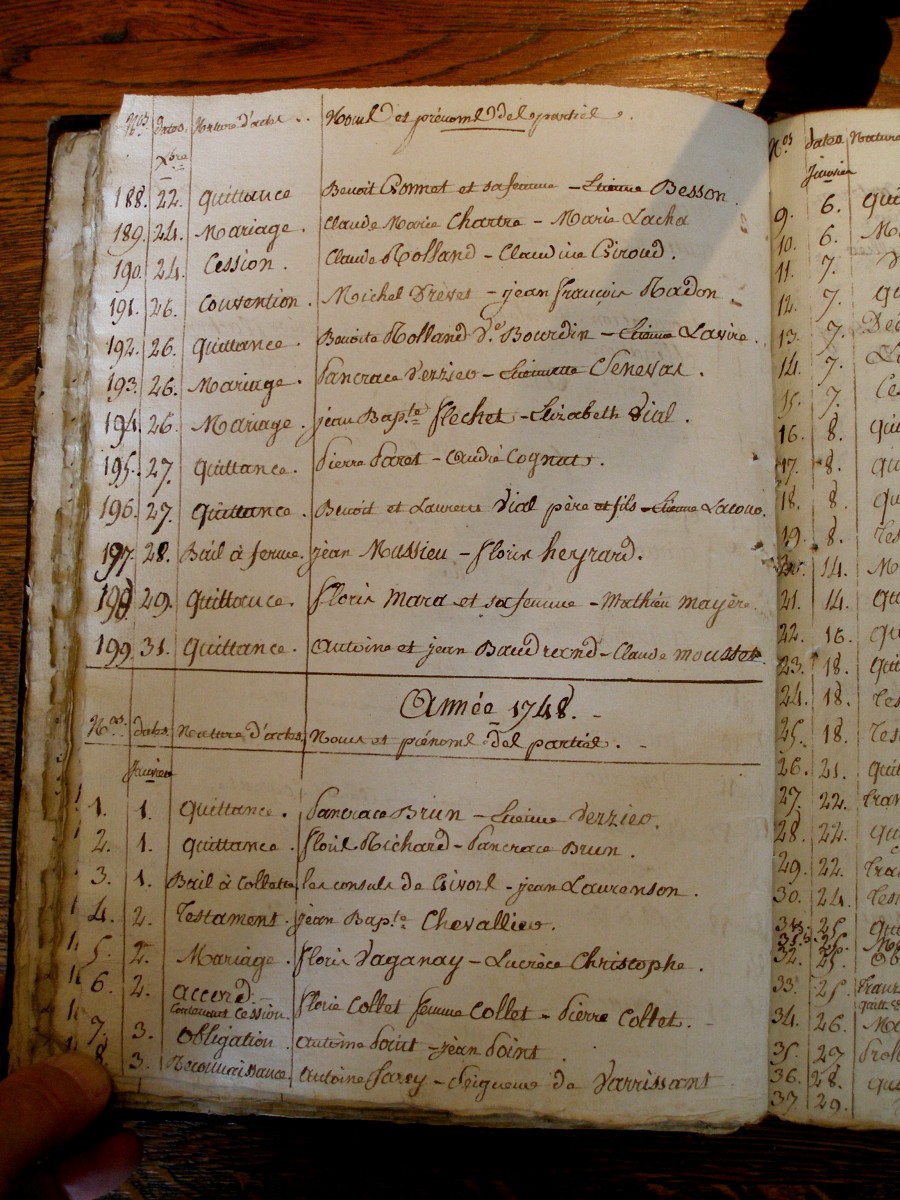 Nos dates Nature d'actes Noms et prénoms des parties.
Xbre
188. 22. Quittance Benoit Bonnet et sa femme - Etienne Besson.
189. 24. Mariage. Claude Marie Chartre - Marie Lacha
190. 24. Cession. Claude Rolland - Claudine Giroud.
191. 26. Convention. Michel Drevet - jean françois Radon
192. 26. Quittance. Benoite Rolland Ve. Bourdin - Etienne Lavire.
193. 26. Mariage. Pancrace Verzier - Etiennette Senevas.
194. 26. Mariage. jean Bapte. flechet - Elizabeth Vial.
195. 27. Quittance. Pierre Paret - Cognat.
196. 27. Quittance. Benoit et Laurent Vial père et fils - Etienne
197. 28. Bail à ferme. jean Massieu - floris heyrard.
198 29. Quittance. floris Mara et sa femme - Mathieu mayère.
199. 31. Quittance. Antoine et jean Baudrand - Claude mousset.
Année 1748.
Nos. dates Nature d'actes Noms et prénoms des parties.
Janvier
1. 1. Quittance. Pancrace Brun - Etienne Verzier.
2. 1. quittance. floris Richard - Pancrace Brun.
3. 1. Bail à Collette les consuls de Givors - jean Laurenson.
4. 2. Testament. jean Bapte. Chevallier.
5. 2. Mariage. floris Vaganay - Lucrèce Christophe.
6. 2. accord. Contenant Cession. florie Collet femme Collet - Pierre Collet.
7. 3. Obligation. Antoine Point - jean Point.
8. 3. Reconnaissance. Antoine - Seigneur de Varrissant
Nos dates Nature
Janvier
9. 6.
10. 6.
11. 7.
12. 7.
13. 7.
14. 7.
15. 7.
16. 8.
17. 8.
18. 8.
19. 8.
20. 14.
21. 14.
22. 16.
23. 18.
24. 18.
25. 18.
26. 21.
27. 22.
28. 22.
29. 22.
30. 24.
32. 25.
33. 25.
34. 26.
35. 27
36. 28.
37. 29.